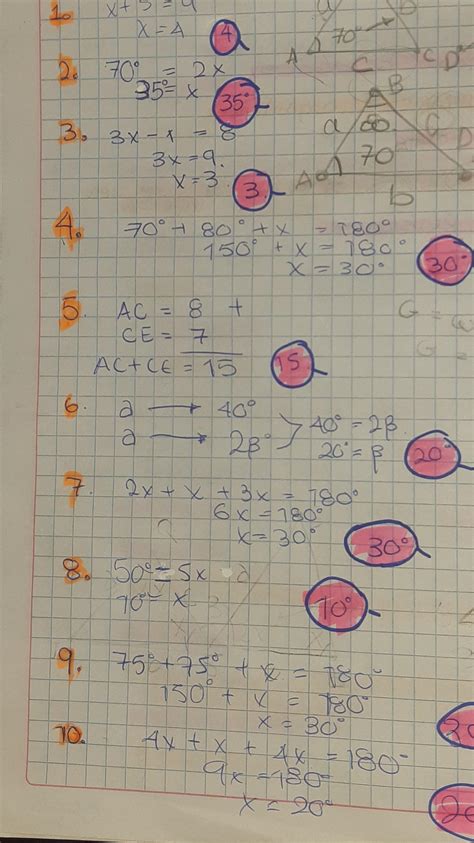 1. x+5 = 9
x = 4 4
2. 70° = 2x
35° = x 35°
3. 3x - 1 = 8
3x = 9.
x = 3 3
4. 70° + 80° + x = 180°
150° + x = 180°
x = 30° 30°
5. AC = 8 +
CE = 7
AC + CE = 15 15
6. a → 40°
a → 2β° 40° = 2β
20° = β 20°
7. 2x + x + 3x = 180°
6x = 180°
x = 30° 30°
8. 50° = 5x
10° = x 10°
9. 75° + 75° + x = 180°
150° + x = 180°
x = 30°
10. 4x + x + 4x = 180°
9x = 180°
x = 20° 20
70°
A C D
C
B
a 80 C
70
A
b
G =
G =